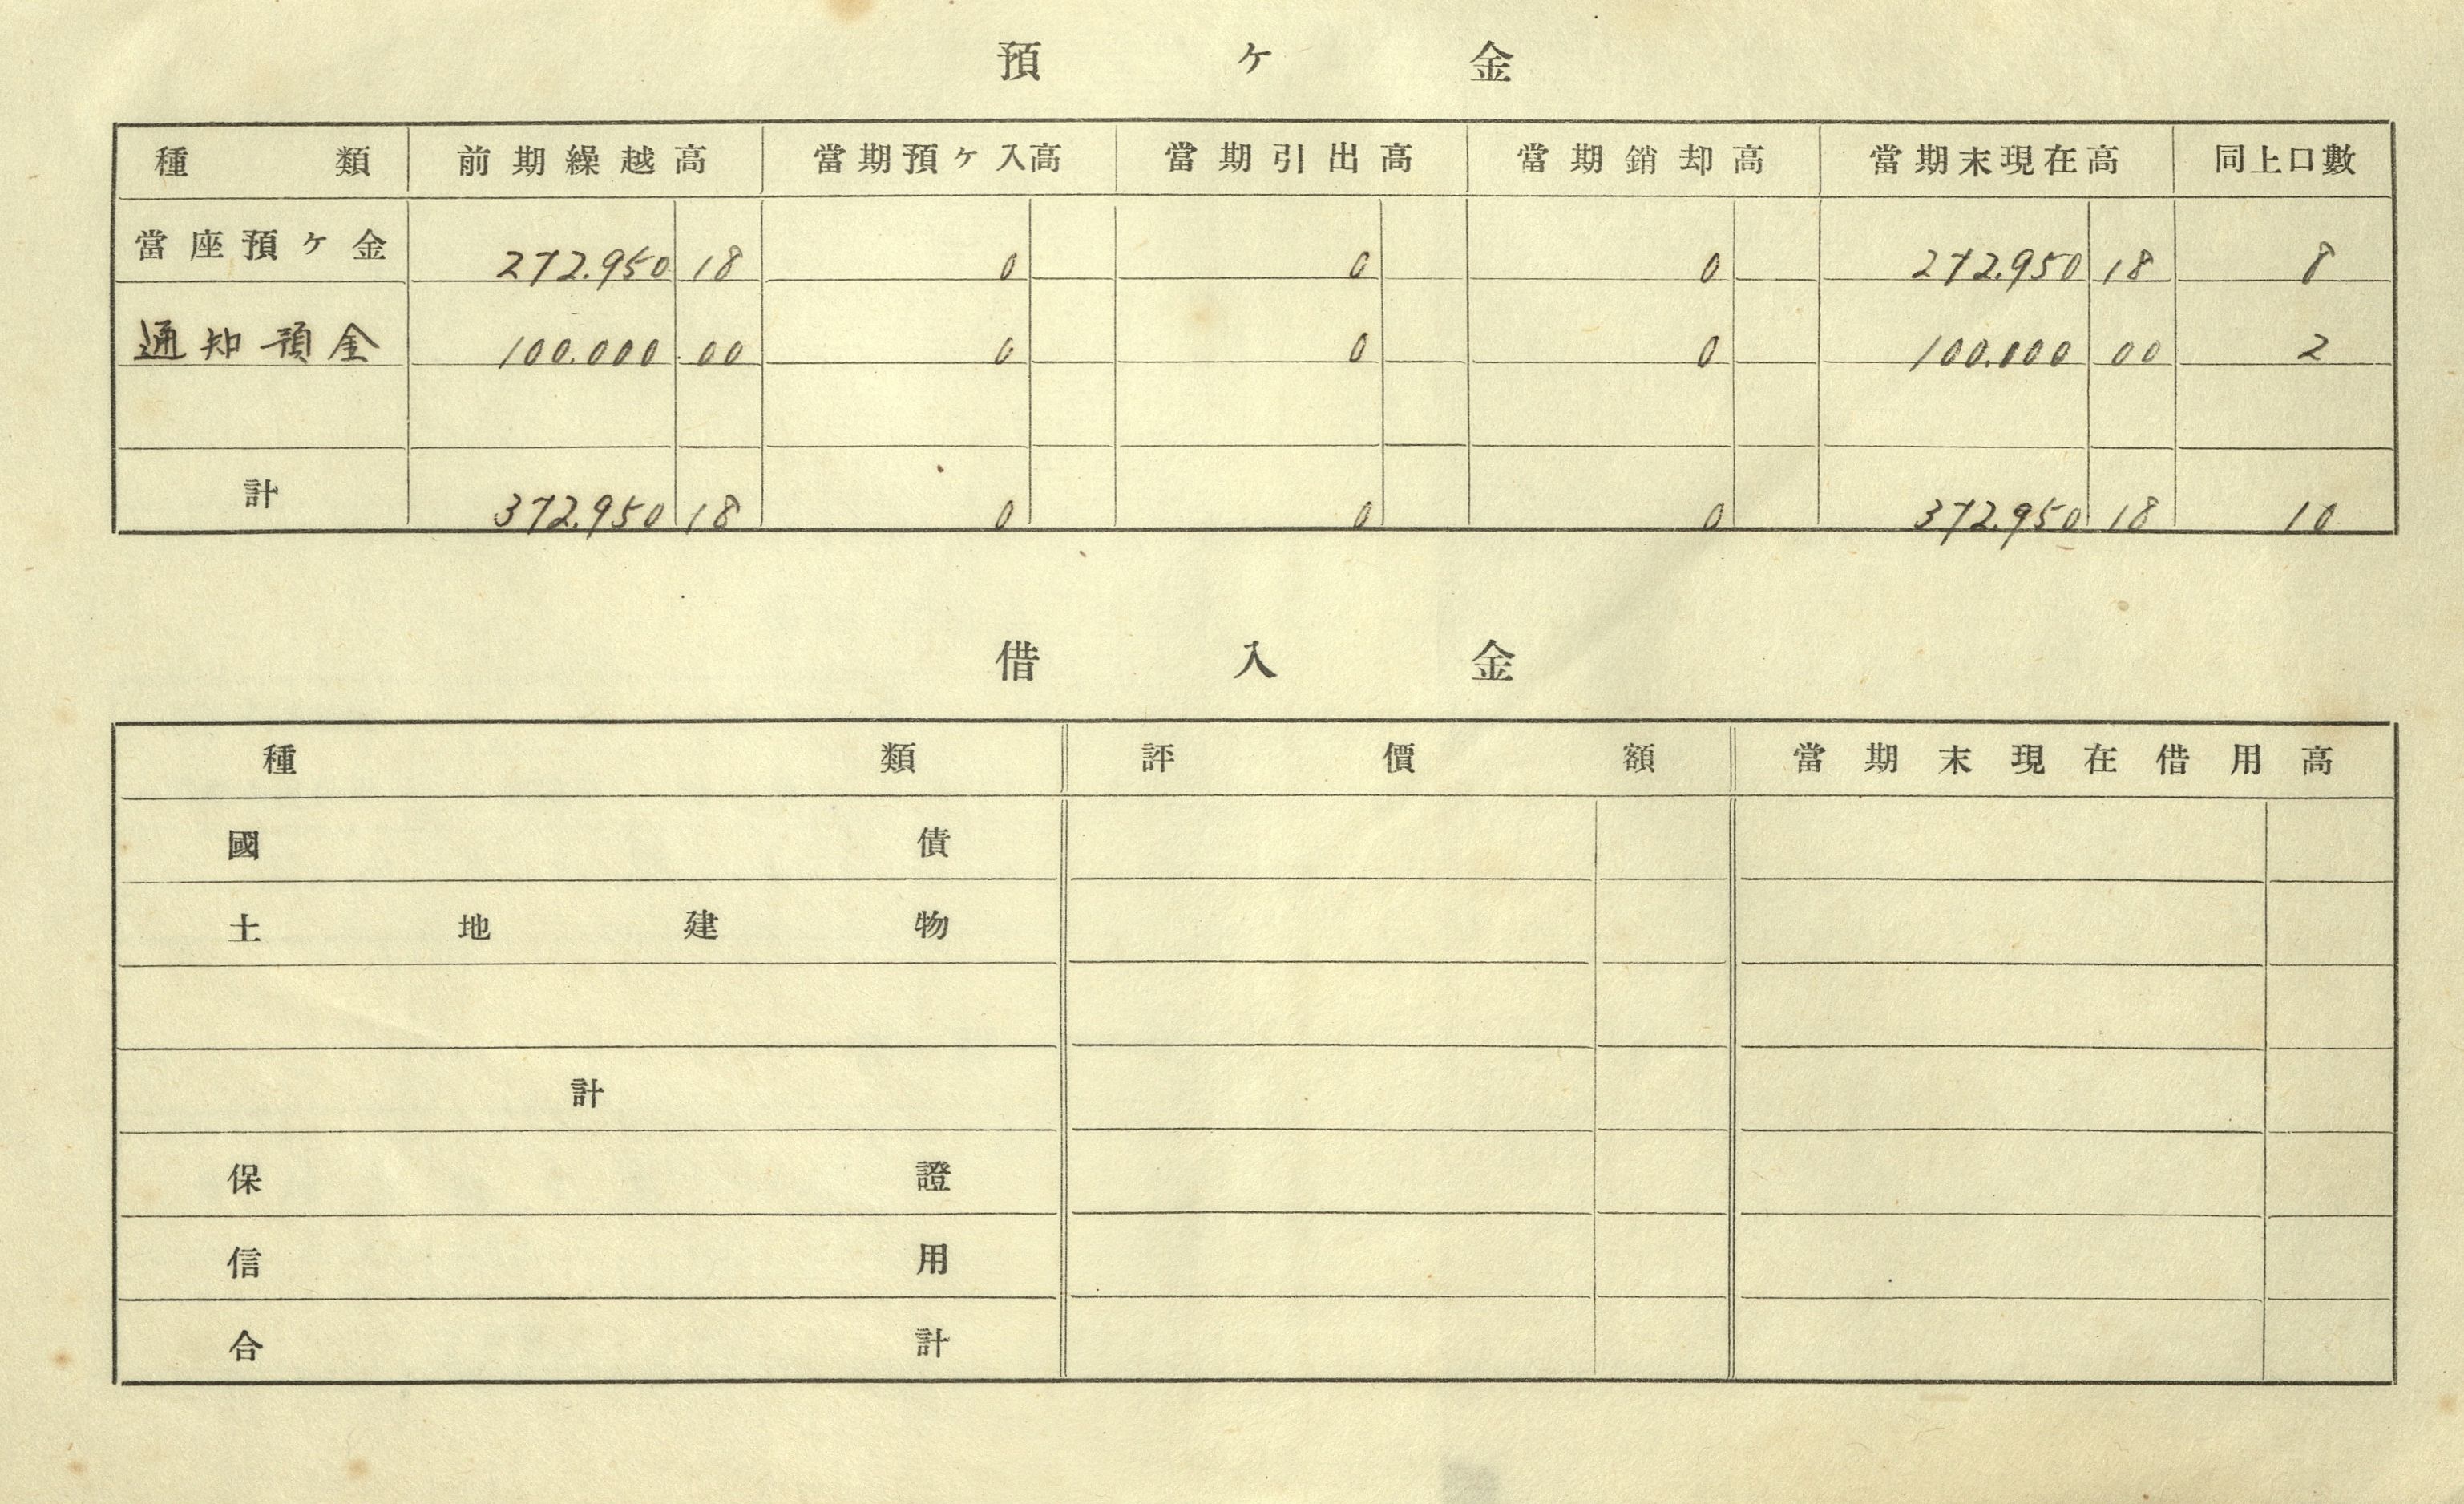 預ケ金
種類 前期繰越高 當期預ケ入高 當期引出高 當期銷却高 當期末現在高 同上口數
當座預ケ金 272.950 18 0 0 0 272.950 18 8
通知預金 100.000 00 0 0 0 100.000 00 2
計 372.950 18 0 0 0 372.950 18 10
借入金
種類 評價額 當期末現在借用高
國債
土地建物
計
保證
信用
合計